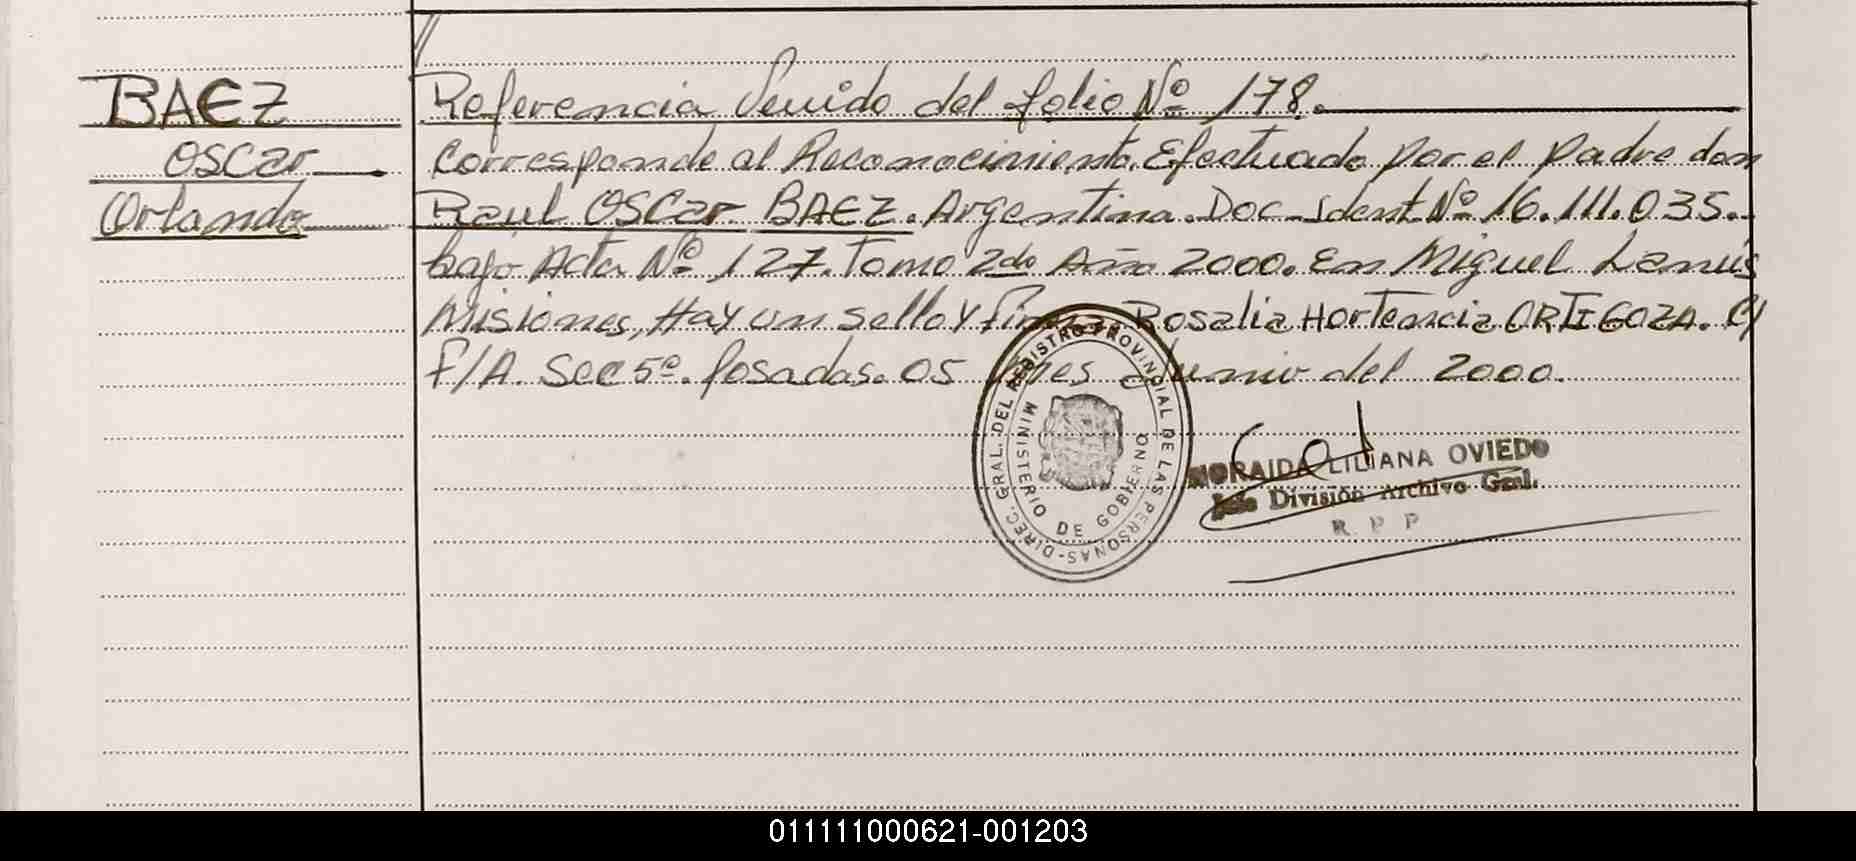 BAEZ
Oscar
Orlando
Referencia Venido del folio Nº 178.
Corresponde al Reconocimiento. Efectuado por el padre don
Raúl Oscar BAEZ. Argentina. Doc. Ident. Nº 16.111.035.
bajo Acta Nº 127. Tomo 2do Año 2000. En Miguel Lanús
Misiones, Hay un sello y firma Rosalia Hortencia ORTIGOZA. C/
F/A. Sec 5º. Posadas. 05 mes Junio del 2000.
DIREC. GRAL. DEL REGISTRO PROVINCIAL DE LAS PERSONAS-
MINISTERIO DE GOBIERNO
NORAIDA LILIANA OVIEDO
Jefe División Archivo Gral.
R. P P
011111000621-001203